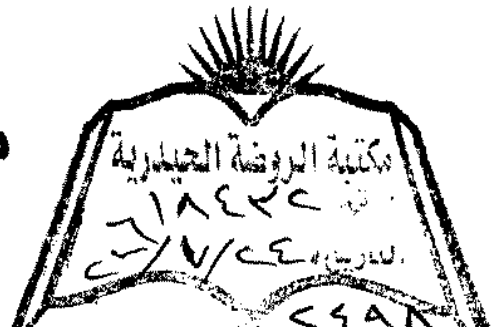 مكتبة الروضة الحيدرية
١٨٤٣٢
التاريخ ٢٤/٧/
٢٤٩٨